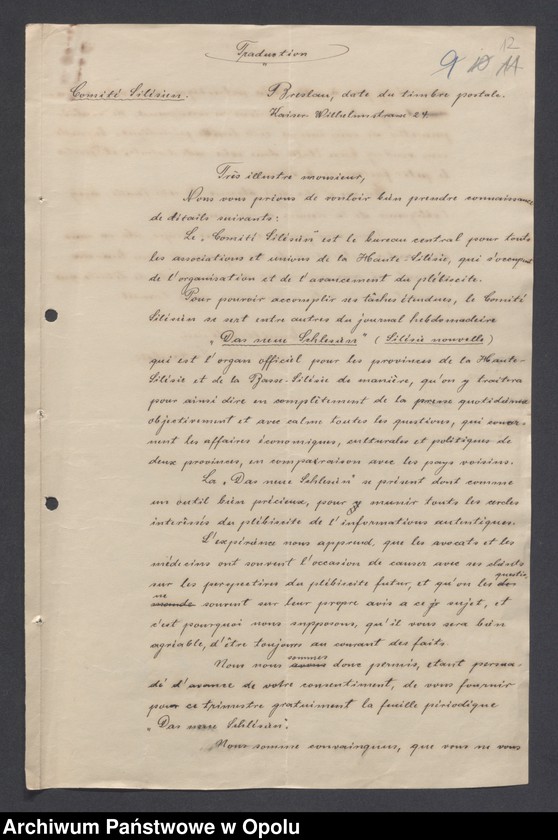 Traduction
9 10 11 12
Comité Silésien.
Breslau, date du timbre postale.
Kaiser Wilhelmstrasse 24.
Très illustre monsieur,
Nous vous prions de vouloir bien prendre connaissance
de détails suivants:
Le „Comité Silésien" est le bureau central pour touts
les associations et unions de la Haute-Silésie, qui s'occupent
de l'organisation et de l'avancement du plébiscite.
Pour pouvoir accomplir ses tâches étendues, le Comité
Silésien se sert entre autres du journal hebdomadaire
„Das neue Schlesien" (Silésie nouvelle)
qui est l'organ officiel pour les provinces de la Haute-
Silésie et de la Basse-Silésie de manière, qu'on y traitera
pour ainsi dire en complètement de la presse quotidienne
objectivement et avec calme toutes les questions, qui concer-
nent les affaires économiques, culturales et politiques de
deux provinces, en comparaison avec les pays voisins.
La „Das neue Schlesien" se présent dont comme
un outil bien précieux, pour y munir touts les cercles
interéssés du plébiscite de l'informations autentiques.
L'expérience nous apprend, que les avocats et les
médecins ont souvent l'occasion de causer avec ses clients
sur les perspectives du plébiscite futur, et qu'on les questio-
ne souvent sur leur propre avis a ce sujet, et
c'est pourquoi nous supposons, qu'il vous sera bien
agréable, d'être toujours au courant des faits.
Nous nous sommes donc permis, etant persua-
dé d'avance de votre consentiment, de vous fournir
pour ce trimestre gratuiment la feuille périodique
„Das neue Schlesien".
Nous somme convainques, que vous ne vous
Archiwum Państwowe w Opolu